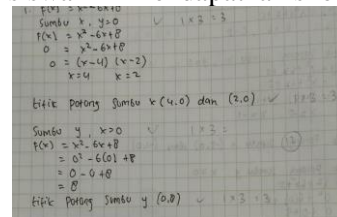 1. f(x) = x² - 6x + 8
Sumbu x, y=0 ✓ 1 x 3 = 3
f(x) = x² - 6x + 8
0 = x² - 6x + 8
0 = (x-4) (x-2)
x=4 x=2
titik potong sumbu x (4,0) dan (2,0) ✓
Sumbu y, x=0 ✓ 1 x 3 =
f(x) = x² - 6x + 8
= 0² - 6(0) + 8
= 0 - 0 + 8
= 8
titik potong sumbu y (0,8) ✓ 1 x 3 = 3